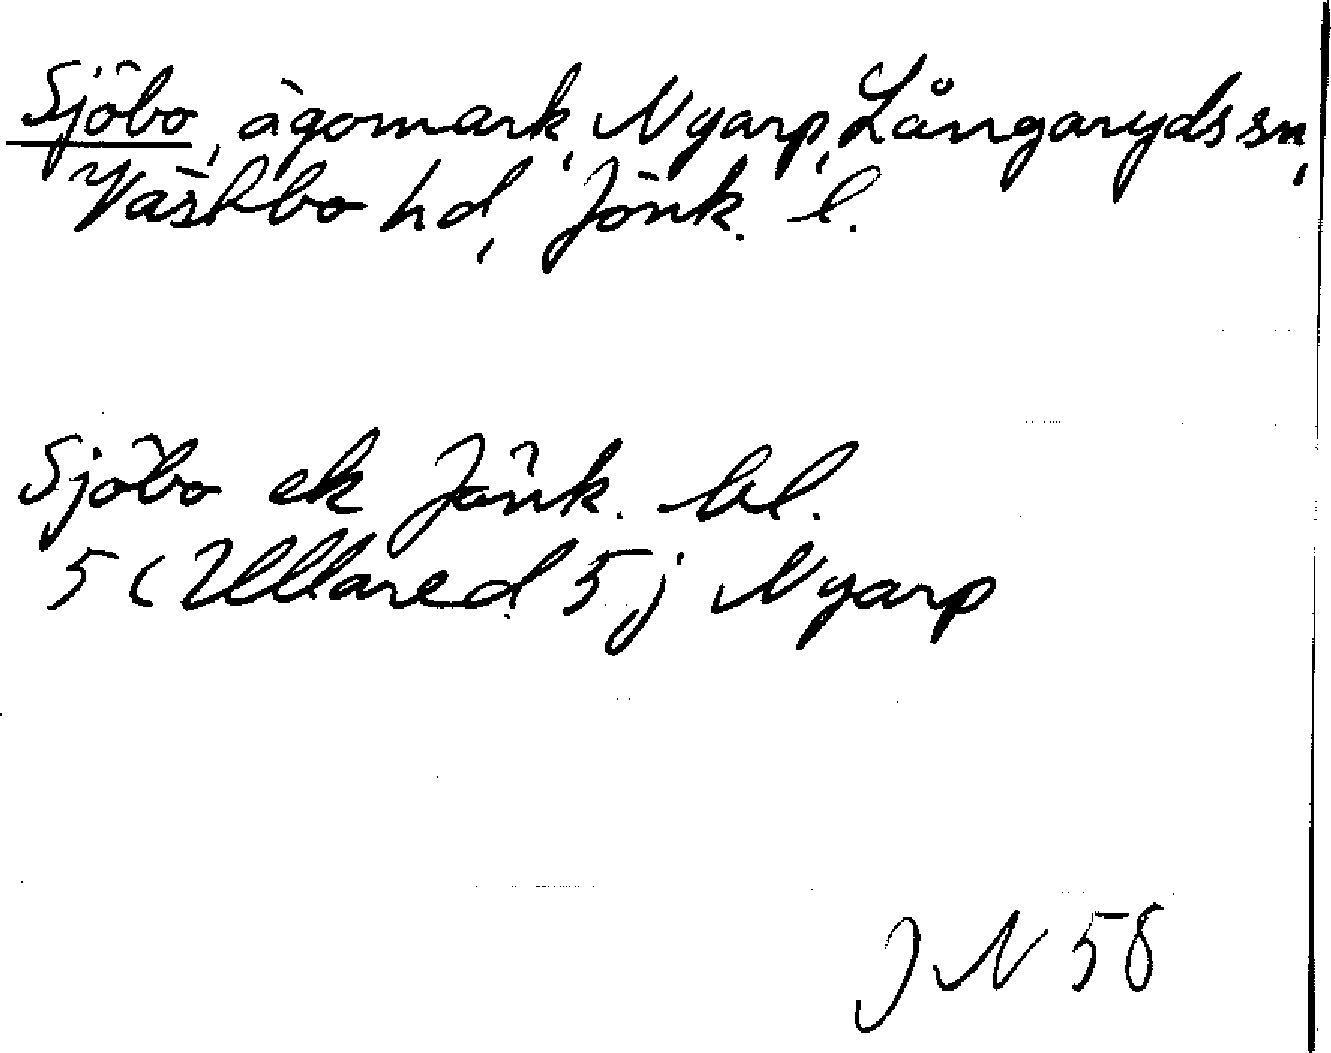 Sjöbo, ägomark, Nyarp, Långaryds sn,
Västbo hd, Jönk. l.
Sjöbo ek Jönk. bl.
5 (Ullared 5j Nyarp
JN 58